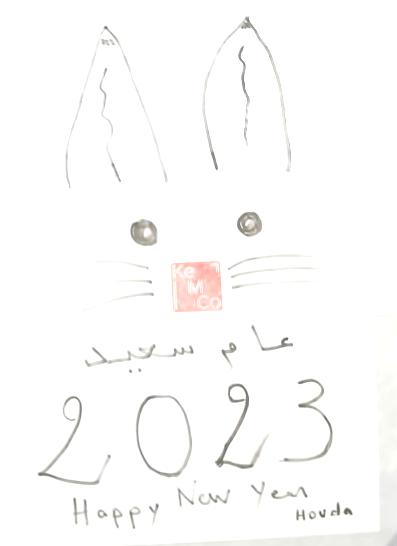 Ke
M
Co
عام سعيد
2023
Happy New Year
Houda